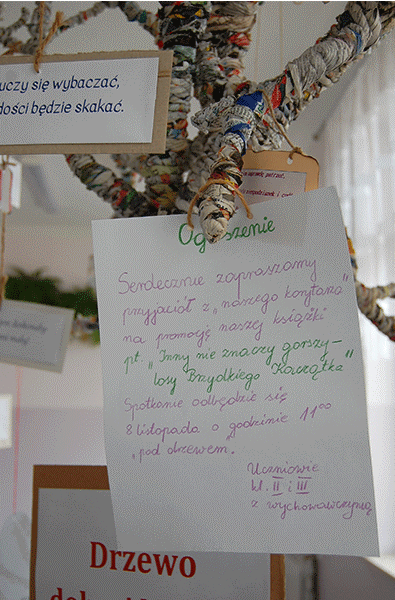 uczy się wybaczać,
dości będzie skakać.
Ogłoszenie
Serdecznie zapraszamy
przyjaciół z „naszego korytarza”
na promocję naszej książki
pt. „Inny nie znaczy gorszy –
losy Brzydkiego Kaczątka”
Spotkanie odbędzie się
8 listopada o godzinie 11⁰⁰
„pod drzewem.
Uczniowie
kl. II i III
z wychowawczynią
Drzewo